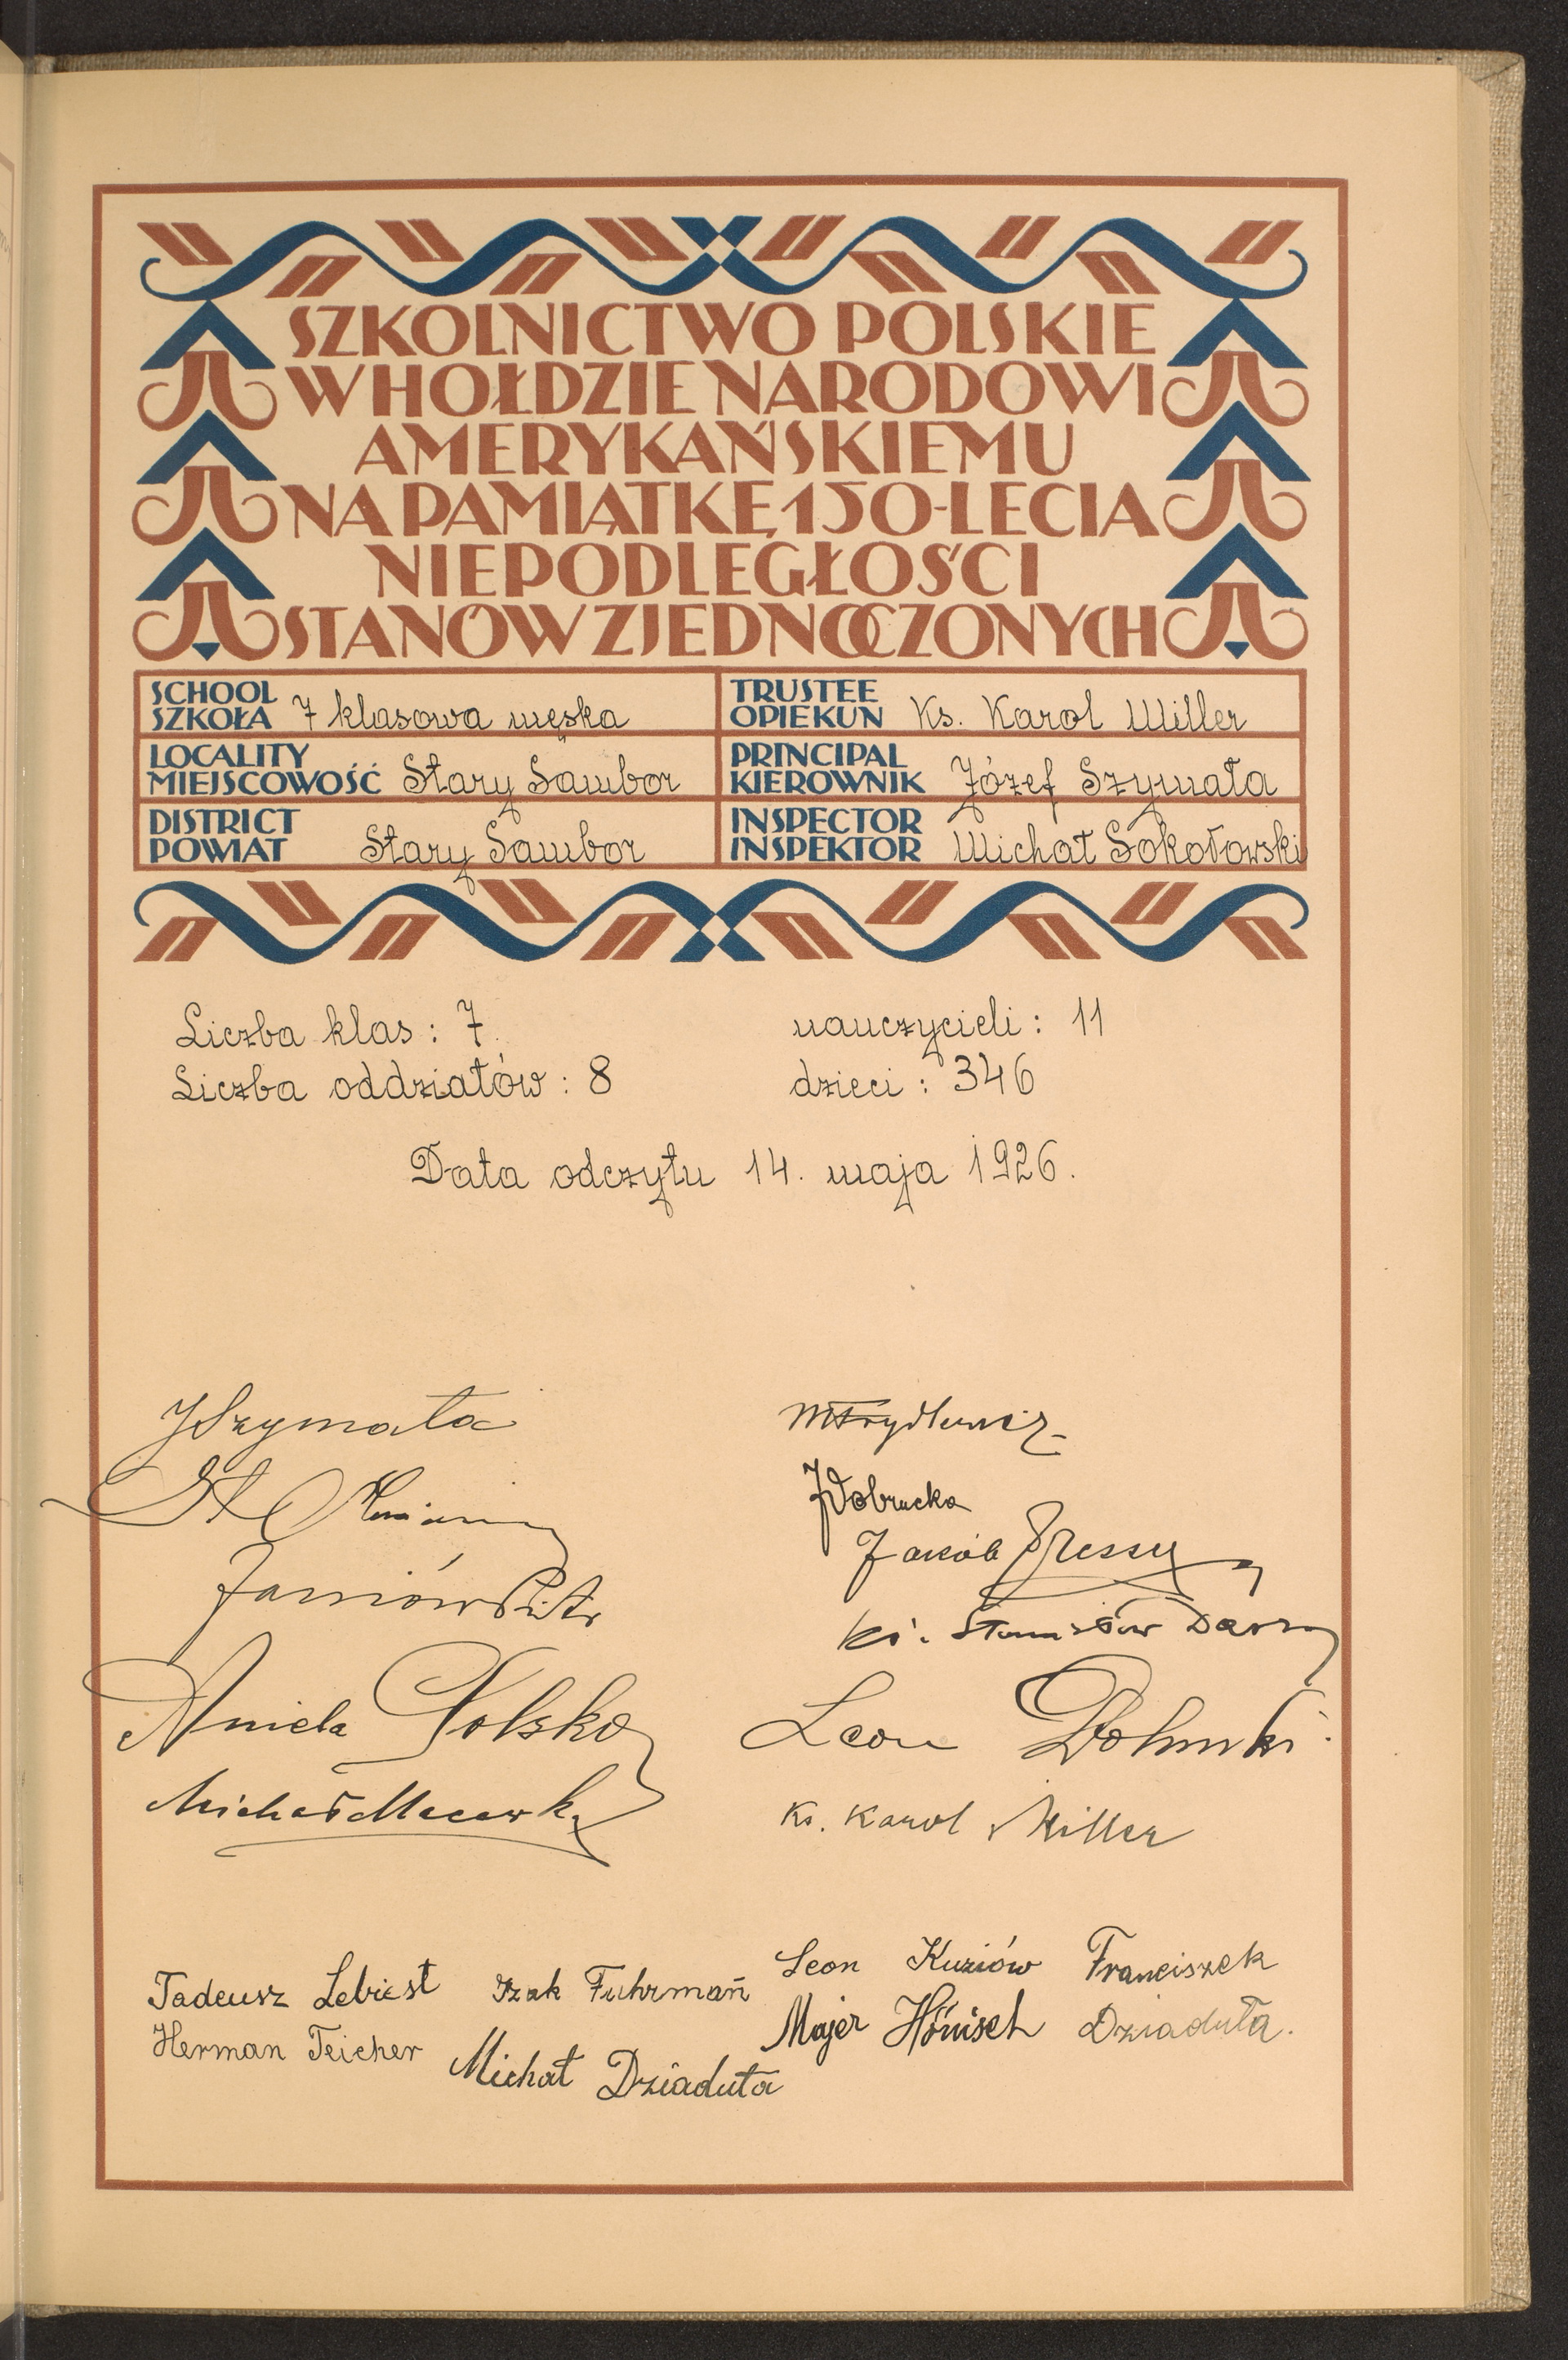 SZKOLNICTWO POLSKIE
W HOŁDZIE NARODOWI
AMERYKAŃSKIEMU
NA PAMIĄTKĘ 150-LECIA
NIEPODLEGŁOŚCI
STANÓW ZJEDNOCZONYCH
SCHOOL
SZKOŁA 7 klasowa męska
TRUSTEE
OPIEKUN Ks. Karol Miller
LOCALITY
MIEJSCOWOŚĆ Stary Sambor
PRINCIPAL
KIEROWNIK Józef Szymała
DISTRICT
POWIAT Stary Sambor
INSPECTOR
INSPEKTOR Michał Sokołowski
Liczba klas: 7.
nauczycieli: 11
Liczba oddziałów: 8
dzieci: 346
Data odczytu 14. maja 1926.
JSzymała
St
Janiów Piotr
Aniela Polska
Michał
JDobrucka
Jakób
Ks. Stanisław
Leon
Ks. Karol Miller
Tadeusz Lebiest Izak Fuhrmań
Leon Kuziów Franciszek
Herman Teicher Michał Dziaduła
Majer Hönisch Dziaduła.